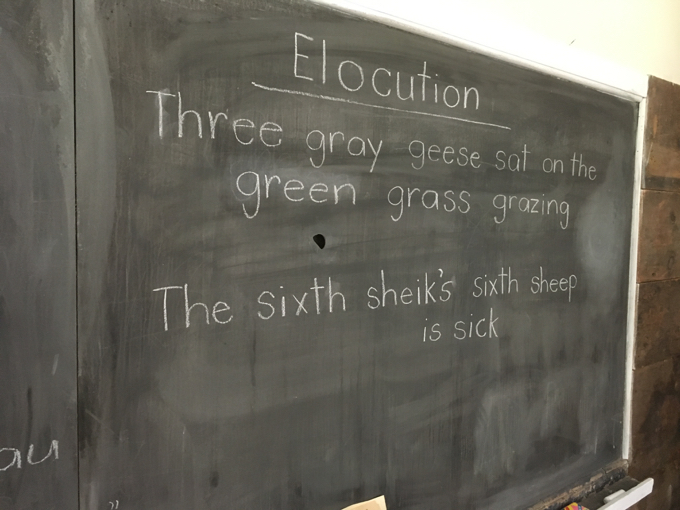 Elocution
Three gray geese sat on the
green grass grazing
The sixth sheik's sixth sheep
is sick
au